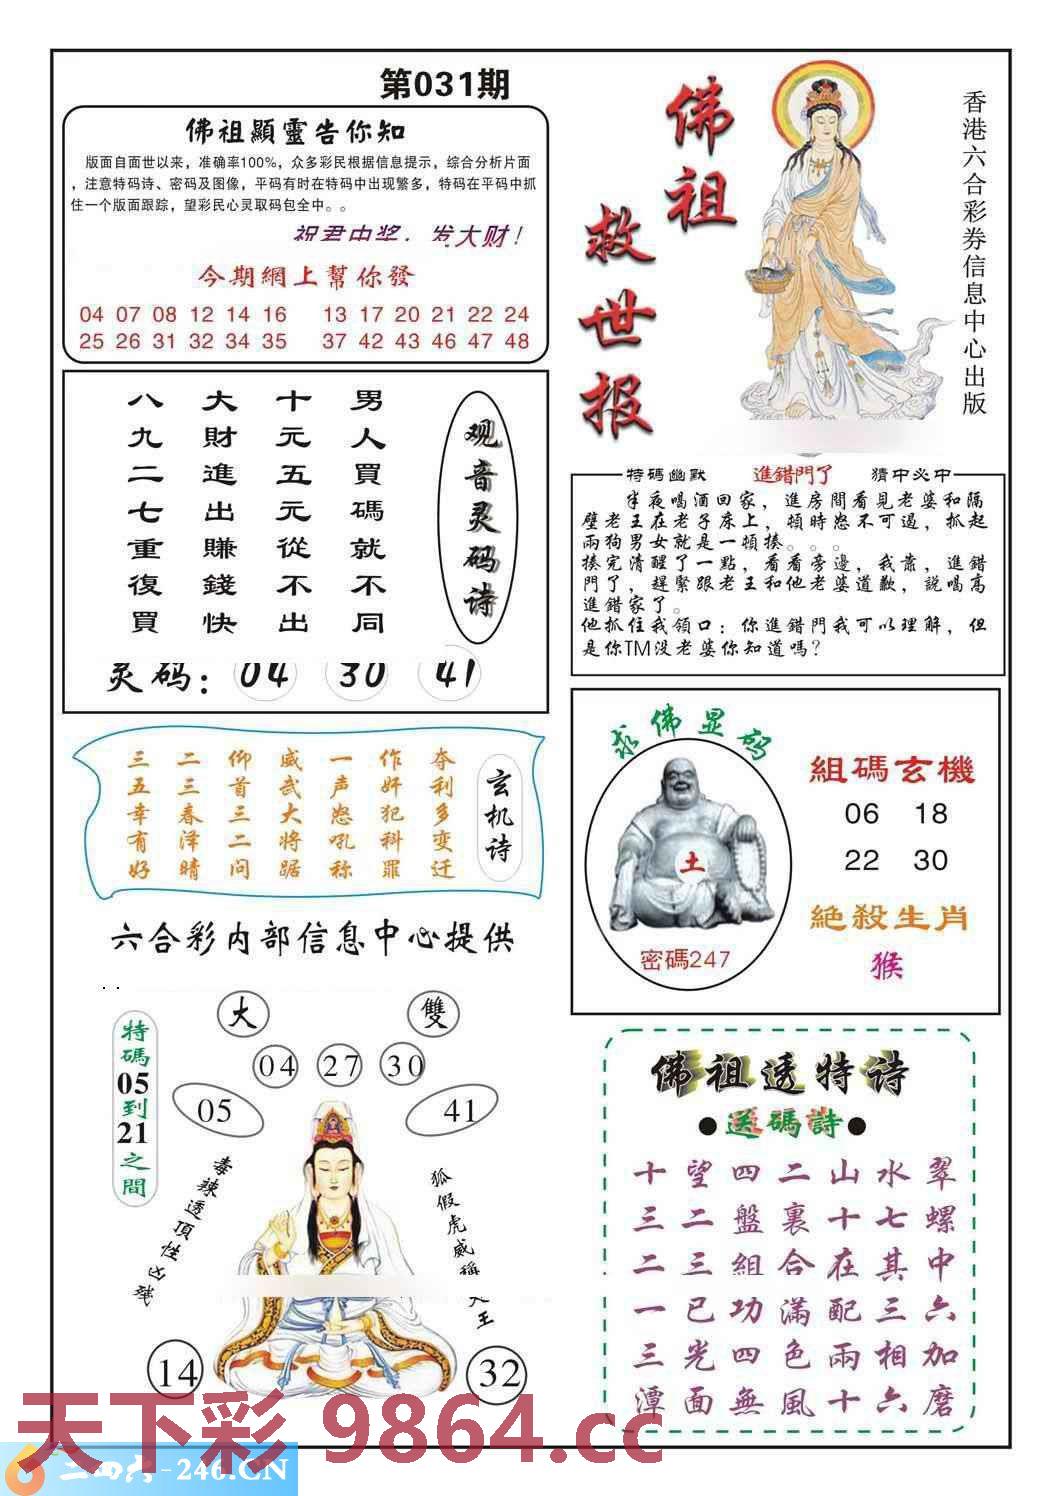 第031期
佛祖顯靈告你知
版面自面世以来，准确率100%，众多彩民根据信息提示，综合分析片面
，注意特码诗、密码及图像，平码有时在特码中出现繁多，特码在平码中抓
住一个版面跟踪，望彩民心灵取码包全中。。
祝君中奖，发大财！
今期網上幫你發
04 07 08 12 14 16 13 17 20 21 22 24
25 26 31 32 34 35 37 42 43 46 47 48
佛祖
救世报
香港六合彩券信息中心出版
观音灵码诗
男人買碼就不同
十元五元從不出
大財進出賺錢快
八九二七重復買
灵码：04 30 41
特碼幽默 進錯門了 猜中必中
半夜喝酒回家，進房間看見老婆和隔
壁老王在老子床上，頓時怒不可遏，抓起
兩狗男女就是一頓揍。。。
揍完清醒了一點，看看旁邊，我靠，進錯
門了，趕緊跟老王和他老婆道歉，説喝高
進錯家了。
他抓住我領口：你進錯門我可以理解，但
是你TM没老婆你知道嗎？
玄机诗
夺利多变迁
作奸犯科罪
一声怒吼称
威武大将踞
仰首三二问
二三春泽晴
三五幸有好
求佛显码
土
密碼247
組碼玄機
06 18
22 30
絶殺生肖
猴
六合彩内部信息中心提供
特碼05到21之間
大 雙
04 27 30
05 41
毒辣透頂性凶残
狐假虎威稱大王
14 32
佛祖透特诗
●送碼詩●
十望四二山水翠
三二盤裏十七螺
二三組合在其中
一已功滿配三六
三光四色兩相加
潭面無風十六磨
天下彩 9864.cc
二四六-246.CN